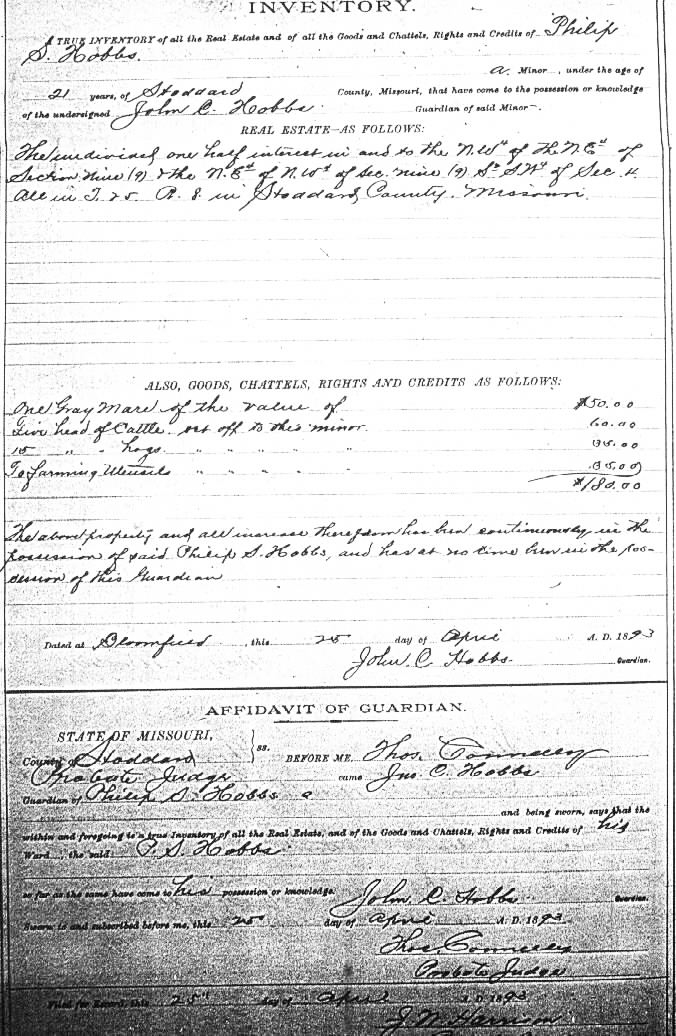 INVENTORY.
A TRUE INVENTORY of all the Real Estate and of all the Goods and Chattels, Rights and Credits of Philip
S. Hobbs.
a Minor, under the age of
21 years, of Stoddard County, Missouri, that have come to the possession or knowledge
of the undersigned John C. Hobbs Guardian of said Minor.
REAL ESTATE—AS FOLLOWS:
The undivided one half interest in and to the N.W⁴ of the N.E⁴ of
Section nine (9) & the N.E⁴ of N.W⁴ of Sec. nine (9) S. W⁴ of Sec. 4
All in T. 25 R. 8 in Stoddard County. Missouri.
ALSO, GOODS, CHATTELS, RIGHTS AND CREDITS AS FOLLOWS:
One Gray Mare of the value of $50.00
Five head of Cattle set off to this minor. 60.00
15 " " hogs. " " " " " 35.00
To farming Utensils " " " " " 35.00
$180.00
The above property and all increase therefrom has been continuously in the
possession of said Philip S. Hobbs, and has at no time been in the pos-
session of this Guardian
Dated at Bloomfield, this 25 day of April A. D. 1893
John C. Hobbs. Guardian.
AFFIDAVIT OF GUARDIAN.
STATE OF MISSOURI,
County of Stoddard ss. BEFORE ME, Thos. Connelly
Probate Judge came Jno C. Hobbs
Guardian of Philip S. Hobbs a
and being sworn, says that the
within and foregoing is a true Inventory of all the Real Estate, and of the Goods and Chattels, Rights and Credits of his
Ward, the said P. S. Hobbs.
so far as the same have come to his possession or knowledge.
John C. Hobbs Guardian.
Sworn to and subscribed before me, this 25 day of April A. D. 1893
Thos. Connelly
Probate Judge
Filed for Record, this 25" day of April A. D. 1893
J. W. Harrison